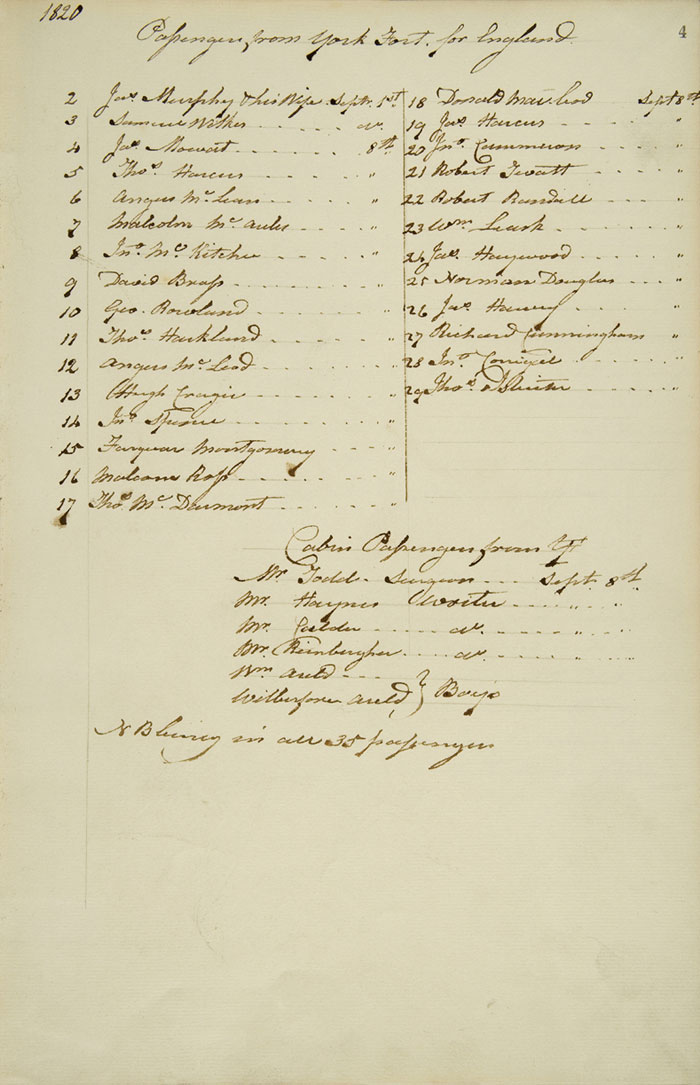 1820
4
Passengers from York Fort. for England
2 Jas. Murphy & his Wife. Septr. 1st
3 Samuel Wilkes - - - - - do.
4 Jas. Mowat - - - - - 8th
5 Thos. Harcus - - - - - "
6 Angus Mc Lean - - - - - "
7 Malcolm Mc Aulis - - - - "
8 Jno. Mc Kitchie - - - - - "
9 David Brass - - - - - "
10 Geo. Rowland - - - - - "
11 Thos. Harkland - - - - - "
12 Angus Mc Leod - - - - - "
13 Hugh Cragie - - - - - "
14 Jno. Spence - - - - - "
15 Farquar Montgomery - - - "
16 Malcom Ross - - - - - "
17 Thos. Mc Dearmont - - - - "
18 Donald Mac leod Sept 8th
19 Jas. Harcus - - - "
20 Jno. Cammeron - - - "
21 Robert Twatt - - - "
22 Robert Randall - - - "
23 Wm. Leask - - - - "
24 Jas. Haywood - - - - "
25 Norman Douglas - - - "
26 Jas. Harvey - - - - "
27 Richard Cunningham "
28 Jno. Corrigel - - - - "
29 Thos. - - - - "
Cabin Passengers from Yt
Mr Todd - Surgeon - - - Sept. 8th
Mr. Haynes Writer - - - " "
Mr. Calder - - - do. - - - " "
Mr. - - - do. - - - "
Wm Auld - - -
Wilberforce Auld } Boys
N B being in all 35 passengers